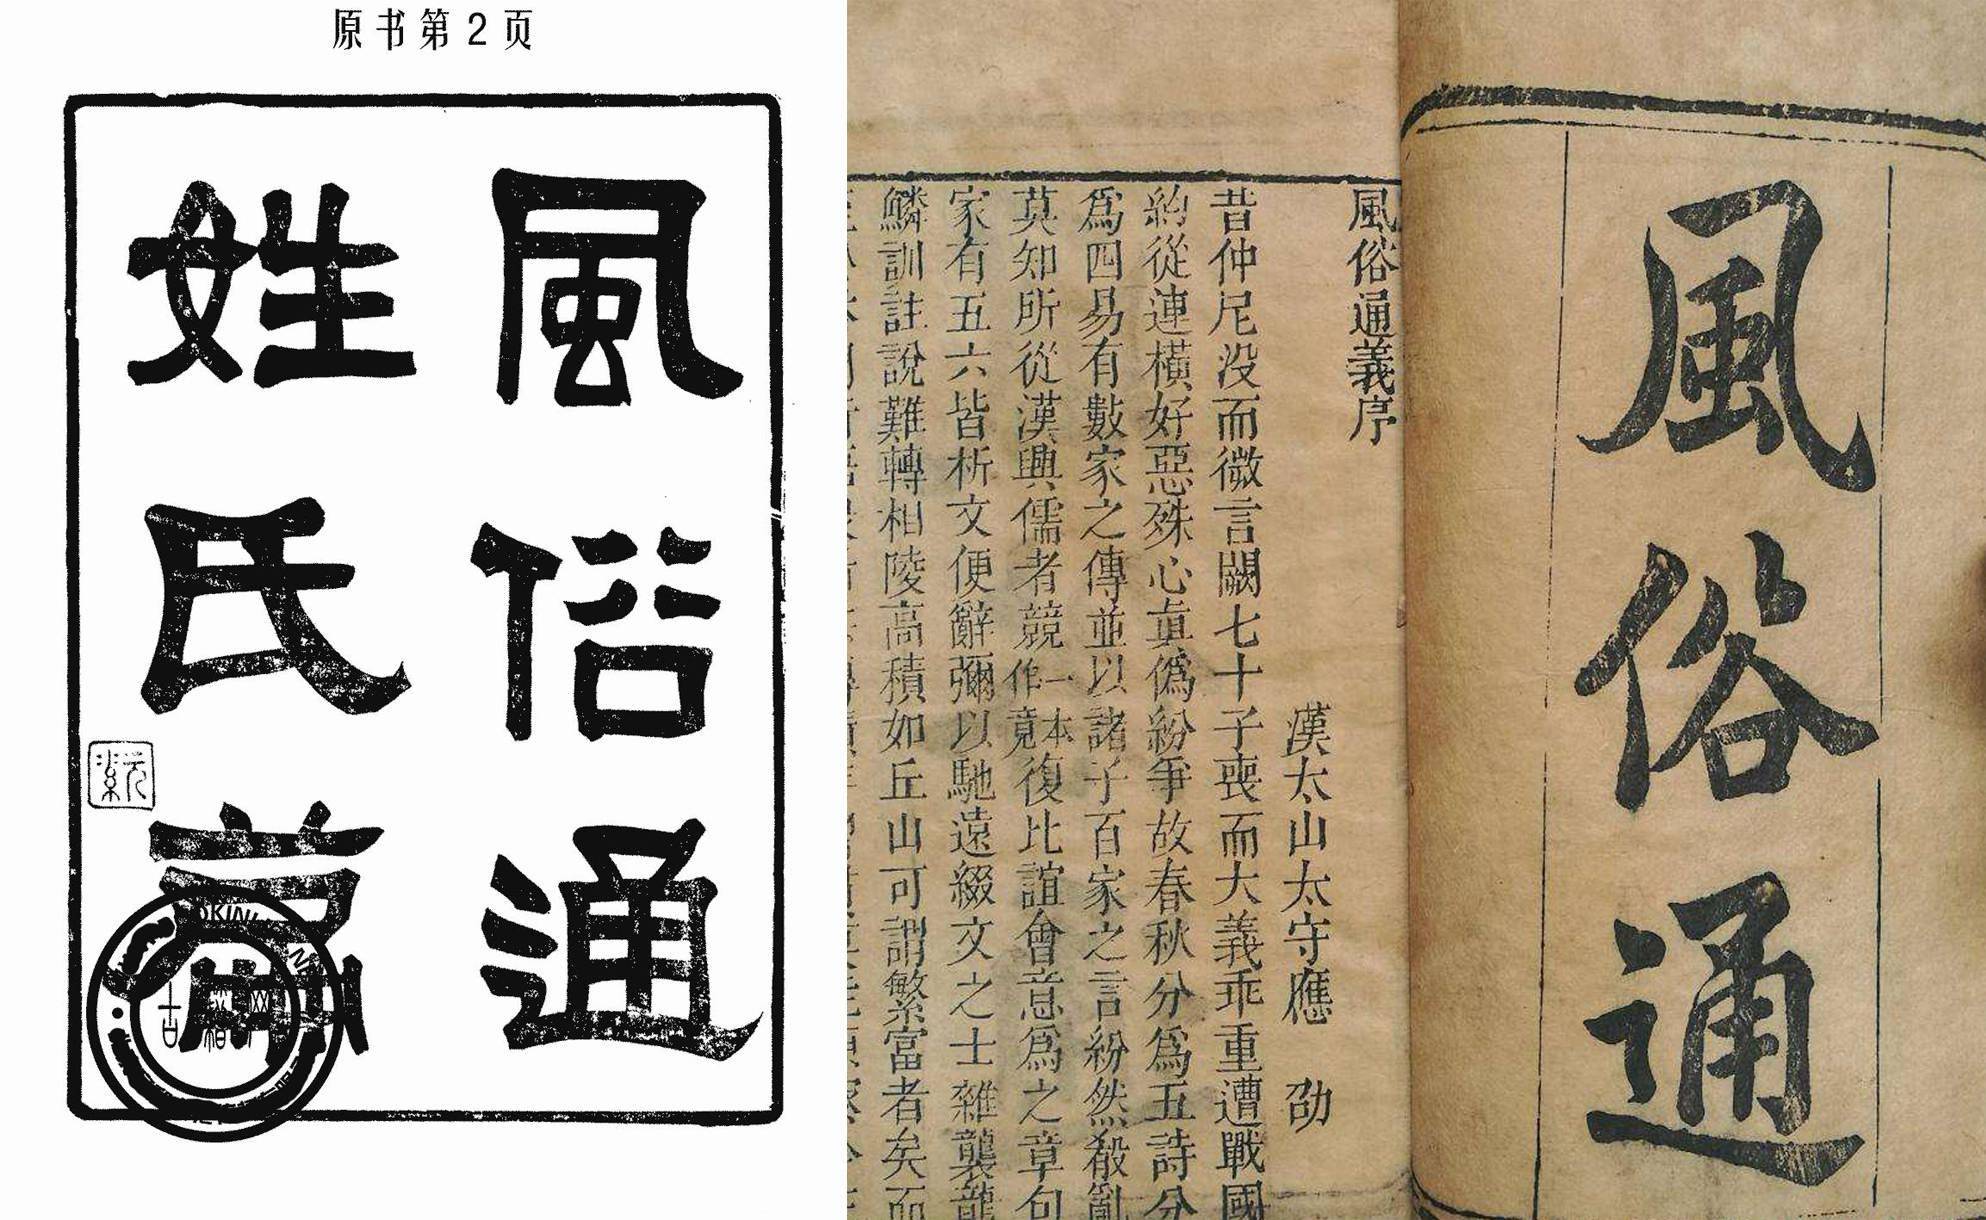 原书第2页
風俗通
姓氏篇
風俗通
風俗通義序
漢太山太守應劭
昔仲尼没而微言闕七十子喪而大義乖重遭戰國
約從連横好惡殊心真僞紛爭故春秋分爲五詩分
爲四易有數家之傳並以諸子百家之言紛然殽亂
莫知所從漢興儒者競一本作竟復比誼會意爲之章句
家有五六皆析文便辭彌以馳遠綴文之士雜襲龍
鱗訓註說難轉相陵高積如丘山可謂繁富者矣而